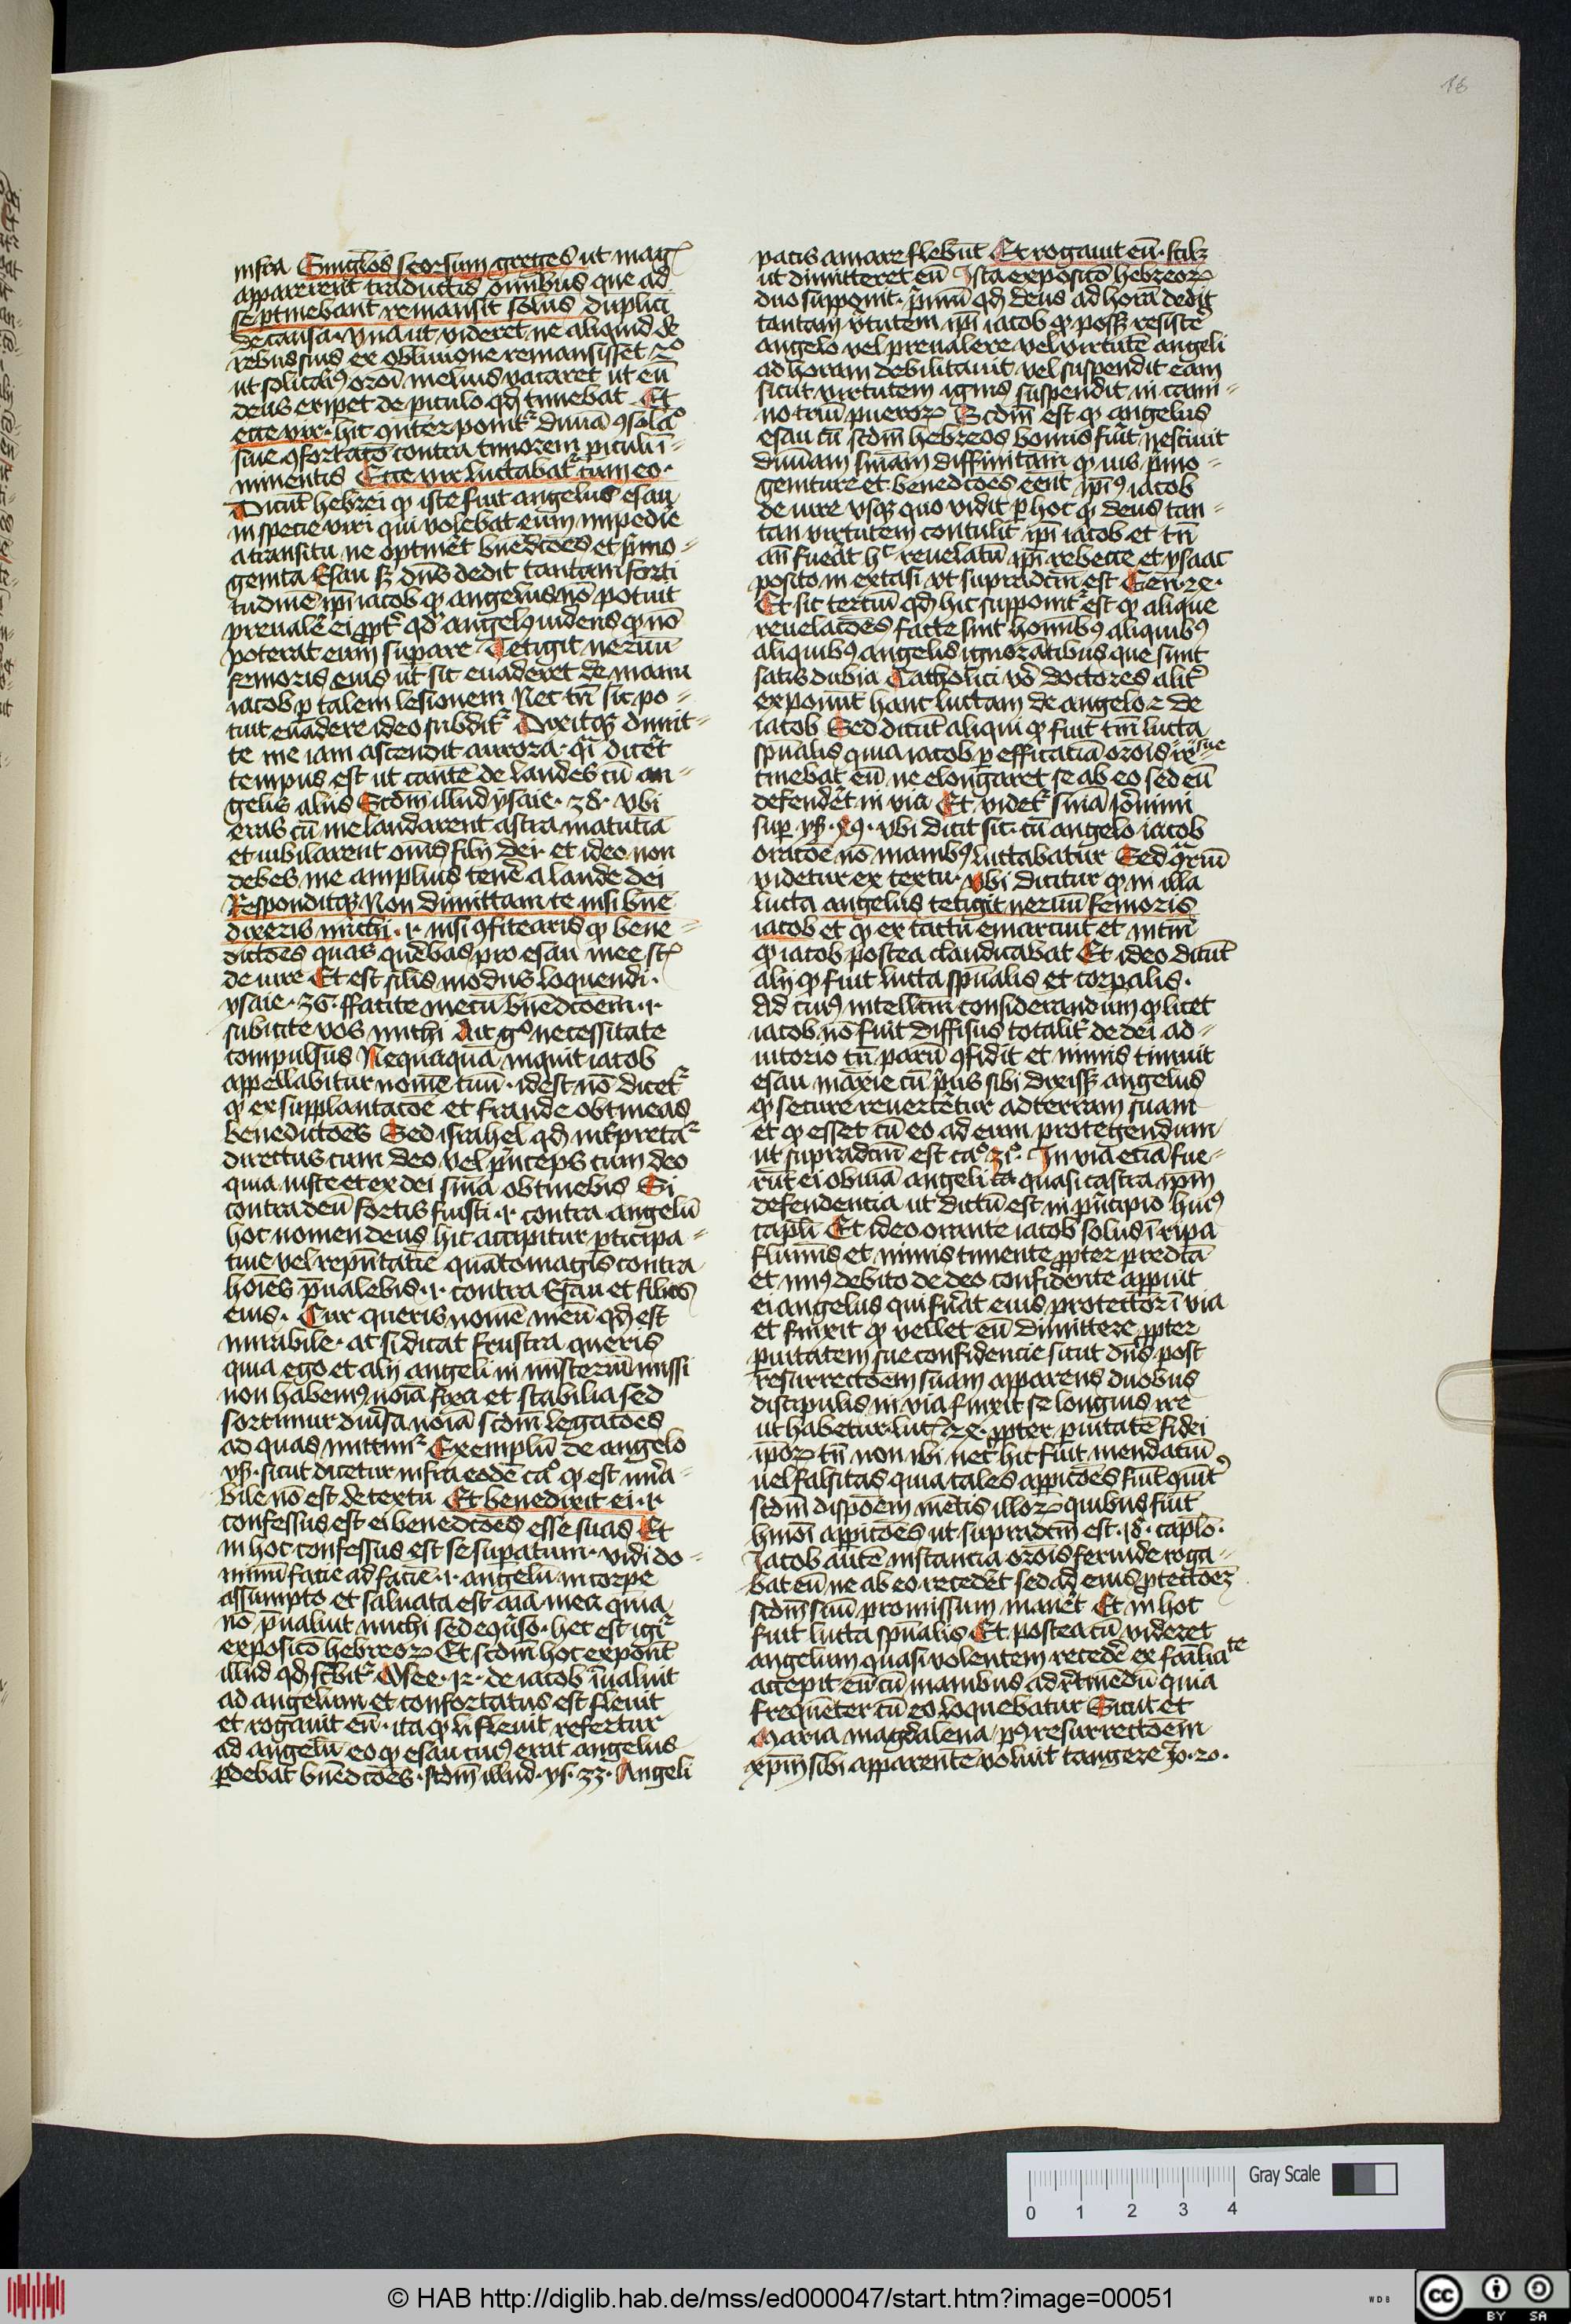 18
infra Singulos seorsum greges ut mag
apparerent traductis omnibus que ad
se ptinebant remansit solus duplici
de causa. vna ut videret ne aliquid de
rebus suis ex obliuione remansisset 2º
ut solitariꝯ oroī melius vacaret ut eū
deus eripet de piculo qd timebat Et
ecce vir. hic ꝯnter ponitr diuīa ꝯsolacō
siue ꝯfortatō contra timorem piculi ī-
minentis Ecce vir luctabatr cum eo.
Dicūt hebrei qꝫ iste fuit angelus esau
in specie viri qui volebat eum impedire
a transitu ne optinēt bn̄edcōes et pimo-
genita Esau sꝫ dn̄s dedit tantam forti
tudinē ipi iacob qꝫ angelus nō potuit
preualē ei ꝓpt qd angelꝯ uidens qꝫ nō
poterat eum supare Tetigit neruū
femoris eius ut sic euaderet de manu
iacob p talem lesionem Nec tn̄ sic po-
tuit euadere ideo subditr Dixitqꝫ dimit-
te me iam ascendit aurora. qi dicēt
tempus est ut cantē de laudes cū an-
gelis aliis Scdm illud ysaie. 38. vbi
eras cū me laudarent astra matutīa
et iubilarent oms filij dei. et ideo non
debes me amplius tenē a laude dei
Responditqꝫ Non dimittam te nisi bn̄e
dixeris michi. .i. nisi ꝯfitearis qꝫ bene-
dictōes quas quēbas pro esau mee st
de iure Et est silis modus loquendi.
ysaie. 36. ffacite mecū bn̄edcōem. .i.
subicite vos michi Ait gº necessitate
compulsus Nequaquā inquit iacob
appellabitur nomē tuū. idest nō dicetr
qꝫ ex supplantacōe et fraude obtineas
benedictōes Sed israhel qd inꝑretar
directus cum deo vel pinceps cum deo
quia iuste et ex dei sn̄ia obtinebis Si
contra deū fortis fuisti .i. contra angelū
hoc nomen deus hic accipitur pticipa-
tiue vel repn̄tatīe quātomagis contra
hoīes p̄ualebis .i. contra Esau et filios
eius. Cur queris nomē meū qd est
mirabile. ac si dicat frustra queris
quia ego et alij angeli in misteriū missi
non habemꝯ noīa fixa et stabilia sed
sortimur diuīsa noīa scdm legacōes
ad quas mittimr Exemplū de angelo
yꝫ. sicut dicetur infra eodē caº qꝫ est mira-
bile nō est de textu Et benedixit ei .i.
confessus est ei benedcōes esse suas Et
in hoc confessus est se supatum. vidi do-
minū facie ad faciē .i. angelū in corpe
assumpto et saluata est aīa mea quia
nō p̄ualuit michi sed eꝯuīso. hec est igir
expositō hebreorꝫ Et scdm hoc exponūt
illud qd scbitr Osee. 12. de iacob īualuit
ad angelum et confortatus est fleuit
et rogauit eū. ita qꝫ li fleuit refertur
ad angelū eo qꝫ esau cuiꝯ erat angelus
pdebat bn̄edcōes. scdm illud. ys. 33. Angeli
pacis amare flebūt Et rogauit eū. scilꝫ
ut dimitteret eū Ista expositō hebreorꝫ
duo supponit. pimū qd deus ad horā dedit
tantam vtutem ipi iacob qꝫ possꝫ resistē
angelo vel preualere vel virtutē angeli
ad horam debilitauit vel suspendit eam
sicut virtutem ignis suspendit in cami-
no triū puerorꝫ Scdm est qꝫ angelus
esau cū scdm hebreos bonus fuīt nesciuit
diuinam sn̄iam diffinitam qꝫ ius pimo-
geniture et benedcōes eēnt ipiꝯ iacob
de iure vsqꝫ quo vidit p hoc qꝫ deus tan-
tan virtutem contulit ipi iacob et tn̄
an̄ fueāt hc reuelatū ipi rebecce et ysaac
posito in extasi vt supradcm est Gen. 25.
Et sic terciū qd hic supponitr est qꝫ alique
reuelacōes facte sint hoīnibꝯ aliquibꝯ
aliquibꝯ angelis ignorātibus que sunt
satis dubia Catholici vō doctores alitr
exponūt hanc luctam de angelo 2 de
iacob Sed dicūt aliqui qꝫ fuit tm̄ lucta
spūalis quia iacob p efficaciā orōis sue re-
tinebat eū ne elongaret se ab eo sed eū
defendēt in via Et videtr sn̄ia ieronimi
sup yꝫ. eꝯ. vbi dicit sic. cū angelo iacob
oratōe nō manibꝯ luctabatur Sed ꝯriū
videtur ex textu. vbi dicitur qꝫ in illa
lucta angelus tetigit neruū femoris
iacob et qꝫ ex tactu emarcuit et intm̄
qꝫ iacob postea claudicabat Et ideo dicūt
alij qꝫ fuit lucta spūalis et corpalis.
Ad cuiꝯ intellcm considerandum qꝫ licet
iacob nō fuit diffisus totalitr de dei ad-
iutorio tn̄ parū ꝯfidit et nimis timuit
esau maxīe cū pius sibi dixissꝫ angelus
qꝫ secure reuertētur ad terram suam
et qꝫ esset cū eo ad eum protegendum
ut supradcm est caº 31º. In via eciā fue-
rūt ei obuiā angeli ta quasi castra ipm
defendencia ut dictū est in pincipio huiꝯ
capli Et ideo orante iacob solus ī ripa
fluminis et nimis timente ꝓpter predcā
et minꝯ debito de deo confidente appuit
ei angelus qui fuāt eius protector ī via
et finxit qꝫ vellet eū dimittere ꝓpter
puitatem sue confidencie sicut dn̄s post
resurrectōem suam apparens duobus
discipulis in via finxit se longius ire
ut habetur luc 24. ꝓpter puitatē fidei
ipōrꝫ tn̄ non ibi nec hic fuit mendaciū
uel falsitas quia tales appicōes fiūt qūtꝯ
scdm dispōem mētis illorꝫ quibus fiūt
hmōi appicōes ut supradcm est. 18. caplo.
Iacob autē instancia orōis feruide roga-
bat eū ne ab eo recedēt sed ad eius ptectōeꝫ
scdm suū promissum manēt Et in hoc
fuit lucta spūalis Et postea cū videret
angelum quasi volentem recedē ex fāiliaite
accepit eū cū manibus ad rtinēdū quia
frequēter cū eo loquebatur Sicut et
Maria magdalena pꝯ resurrectōem
xpm sibi apparentē voluit tangere Jo. 20.
0 1 2 3 4
Gray Scale
© HAB http://diglib.hab.de/mss/ed000047/start.htm?image=00051
WDB
CC BY SA